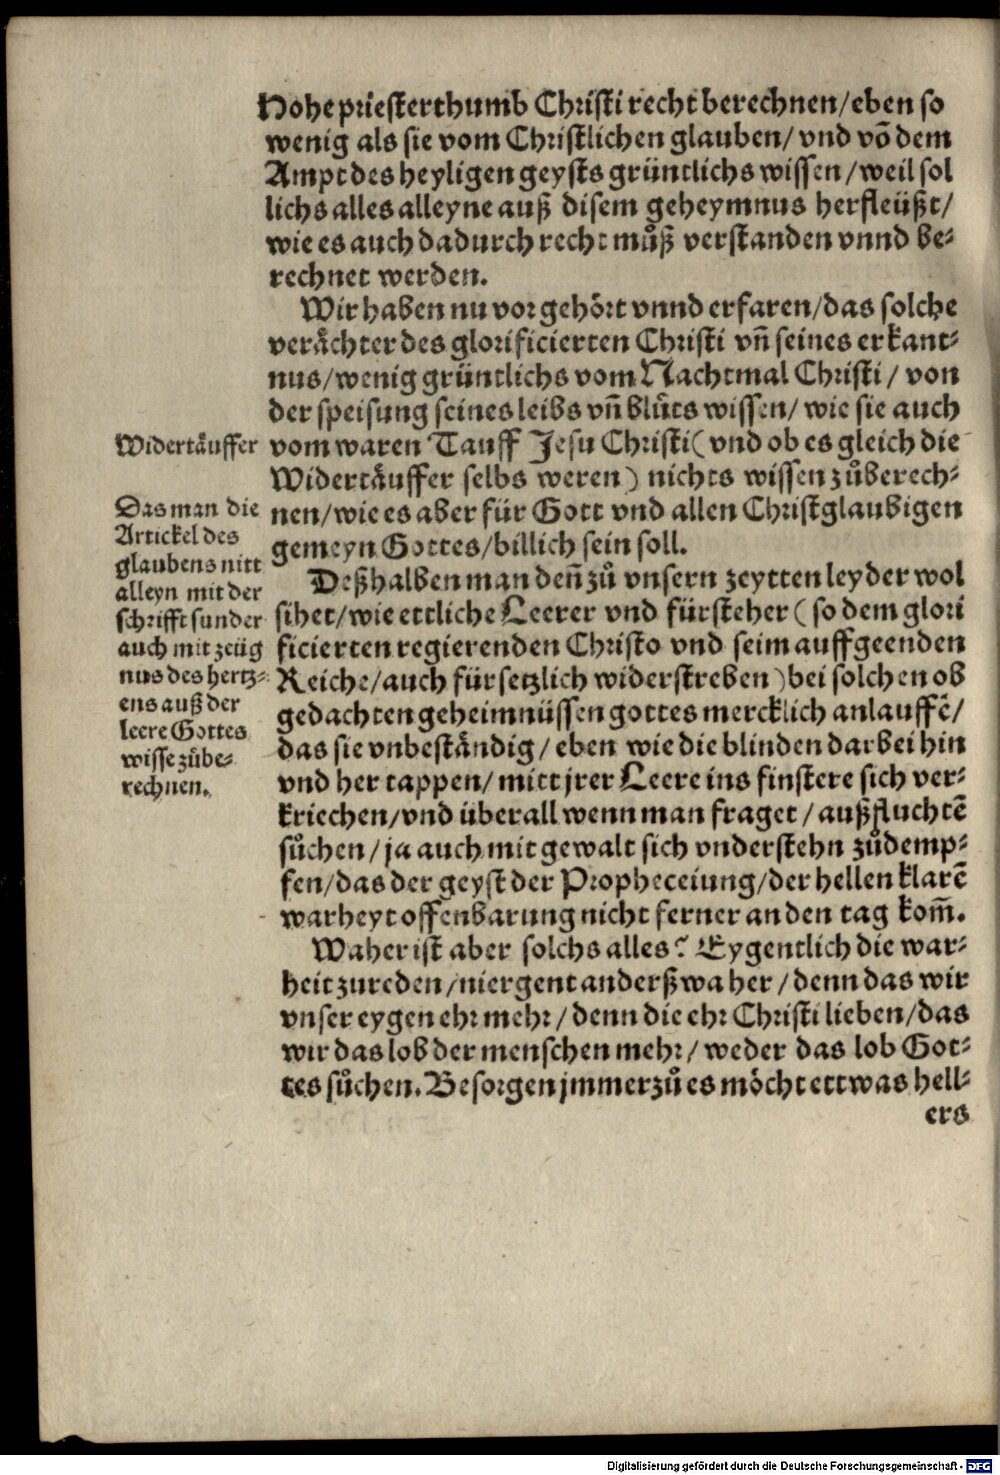 Hohepriesterthumb Christi recht berechnen/eben so
wenig als sie vom Christlichen glauben/ vnd võ dem
Ampt des heyligen geysts gründtlichs wissen/weil sol
lichs alles alleyne auß disem geheymnus herfleüßt/
wie es auch dadurch recht můß verstanden vnnd be-
rechnet werden.
Wir haben nu vor gehört vnnd erfaren/das solche
verächter des glorificierten Christi vñ seines erkant-
nus/wenig grüntlichs vom Nachtmal Christi/ von
der speisung seines leibs vñ blůts wissen/ wie sie auch
vom waren Tauff Jesu Christi( vnd ob es gleich die
Widertäuffer selbs weren) nichts wissen zůberech-
nen/wie es aber für Gott vnd allen Christglaubigen
gemeyn Gottes/billich sein soll.
Widertäuffer
Das man die
Artickel des
glaubens nitt
alleyn mit der
schrifft sunder
auch mit zeüg
nus des hertz-
ens auß der
leere Gottes
wisse zůbe-
rechnen.
Deßhalben man deñ zů vnsern zeytten leyder wol
sihet/wie ettliche Leerer vnd fürsteher( so dem glori
ficierten regierenden Christo vnd seim auffgeenden
Reiche/auch fürsetzlich widerstreben)bei solchen ob
gedachten geheimnüssen gottes mercklich anlauffẽ/
das sie vnbeständig/ eben wie die blinden darbei hin
vnd her tappen/ mitt jrer Leere ins finstere sich ver-
kriechen/vnd überall wenn man fraget/ außfluchtẽ
sůchen/ja auch mit gewalt sich vnderstehn zůdemp-
fen/das der geyst der Propheceiung/der hellen klarẽ
warheyt offenbarung nicht ferner an den tag kom̃.
Waher ist aber solchs alles? Eygentlich die war-
heit zureden/niergent anderßwa her/denn das wir
vnser eygen ehr mehr/denn die ehr Christi lieben/das
wir das lob der menschen mehr/ weder das lob Got-
tes sůchen. Besorgen jmmerzů es möcht ettwas hell-
ers
Digitalisierung gefördert durch die Deutsche Forschungsgemeinschaft - DFG